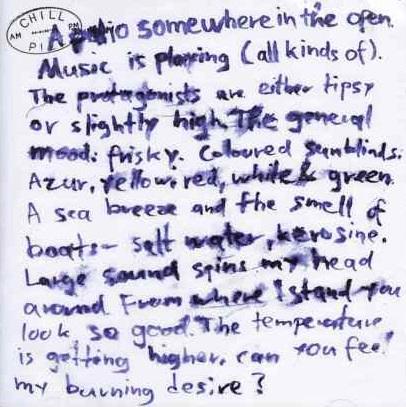 CHILL
AM PM
P.I.
A radio somewhere in the open.
Music is playing (all kinds of).
The protagonists are either tipsy
or slightly high. The general
mood: frisky. Coloured sunblinds.
Azur, yellow, red, white & green.
A sea breeze and the smell of
boats - salt water, kerosine.
Large sound spins my head
around From where I stand you
look so good. The temperature
is getting higher, can you feel
my burning desire?